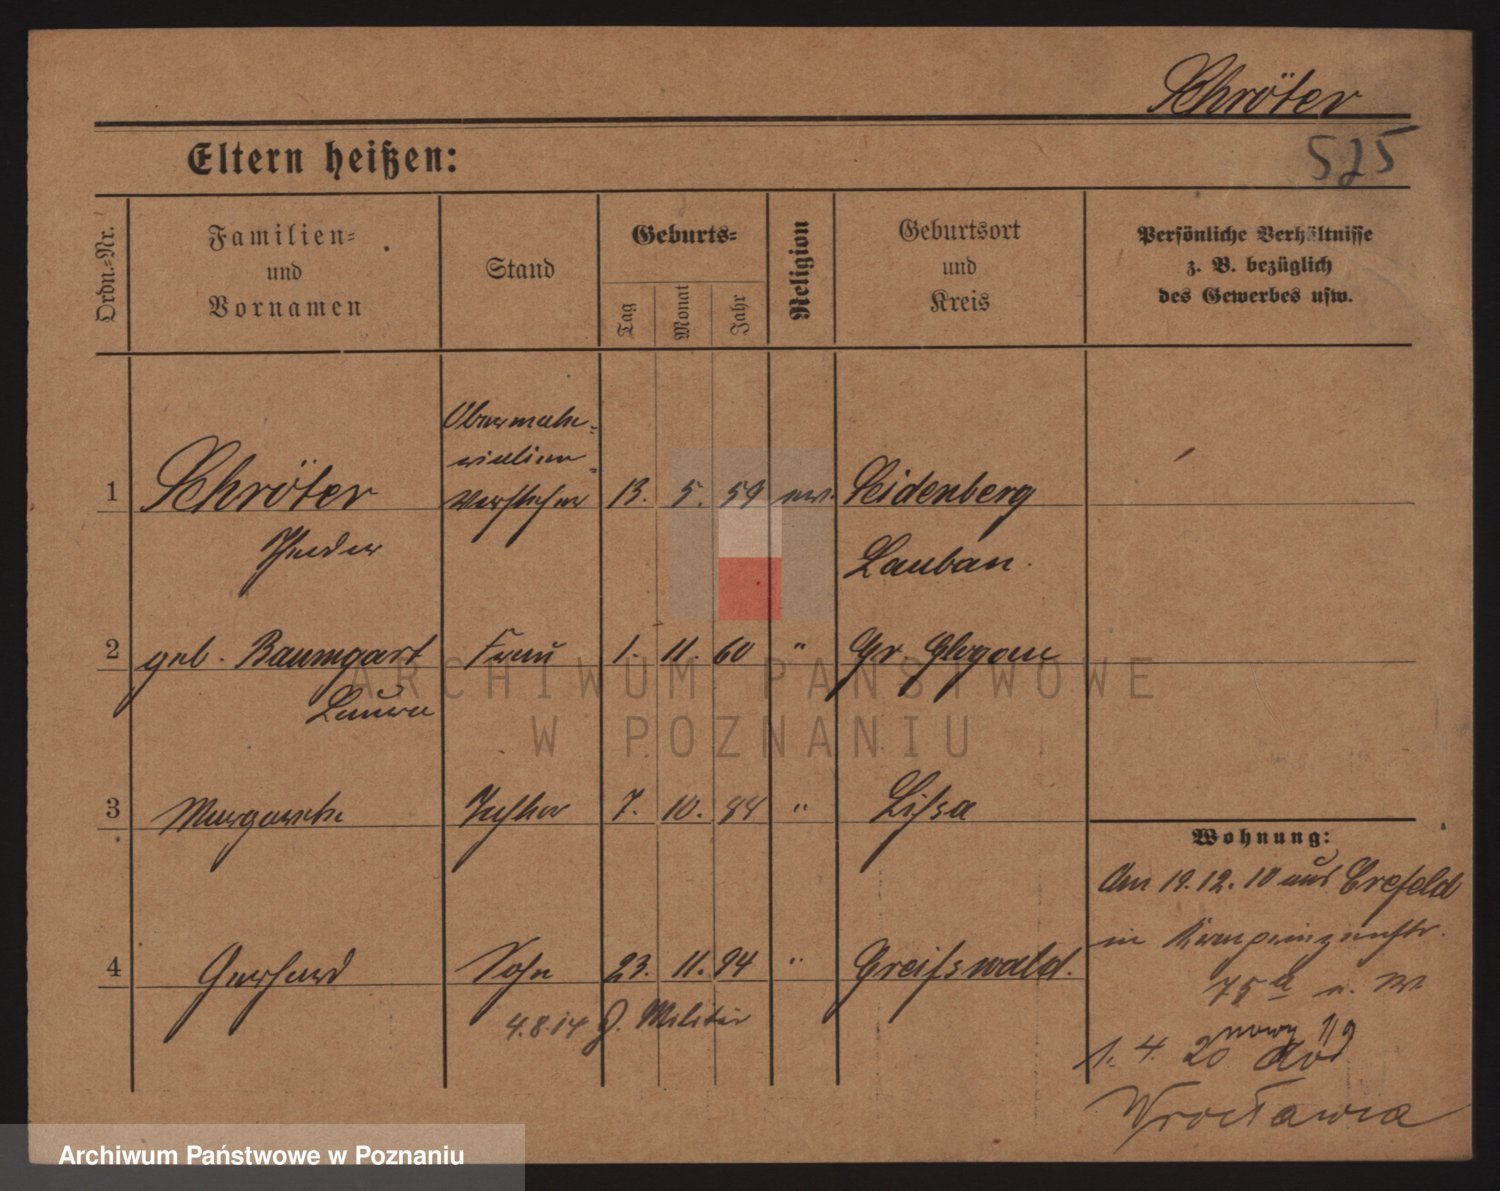 Schröter
Eltern heißen:
525
Ordn.-Nr.
Familien-
und
Vornamen
Stand
Geburts-
Tag
Monat
Jahr
Religion
Geburtsort
und
Kreis
Persönliche Verhältnisse
z. B. bezüglich
des Gewerbes usw.
1 Schröter Obermate-
rialien-
Vorsteher 13. 5. 59 ev. Seidenberg
Lauban.
2 geb. Baumgart Frau 1. 11. 60 " Gr. Glogau
Laura
3 Margarete Tochter 7. 10. 88 " Lissa
4 Gerhard Sohn 23. 11. 94 " Greifswald.
4.8.14 z. Militär
Wohnung:
Am 19.12.10 aus Crefeld
in
75a u. M
nowy 1/9
1. 4. 20 do
Wrocławia
ARCHIWUM PAŃSTWOWE
W POZNANIU
Archiwum Państwowe w Poznaniu